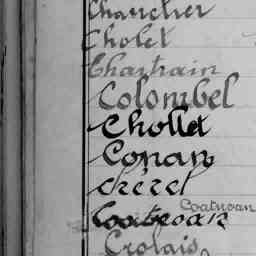 Chanclier
Cholet
Chartrain
Colombel
Chollet
Conan
Crézel
Coatsoan
Crolais